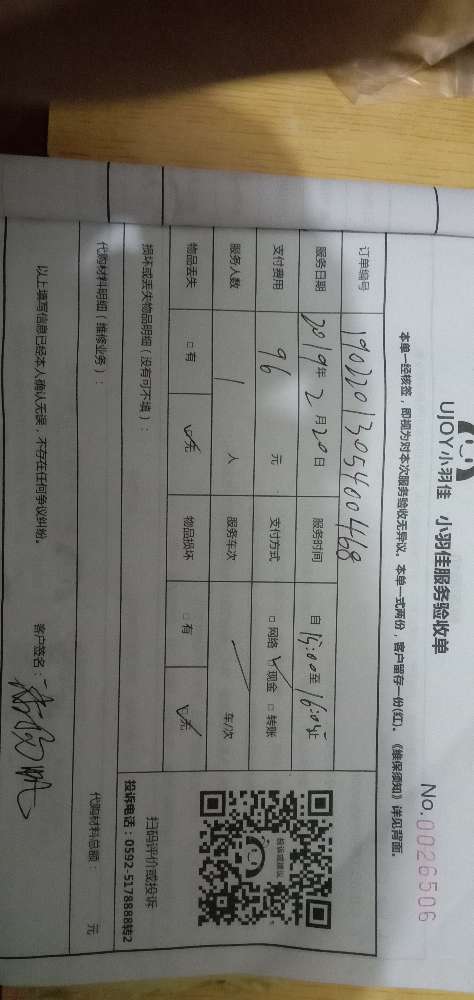 UJOY小羽佳 小羽佳服务验收单
No.0026506
本单一经核签，即视为对本次服务验收无异议。本单一式两份，客户留存一份(红)。《维保须知》详见背面。
订单编号 1902201305400468
服务日期 2019年2月20日 服务时间 自15:00至16:05止
支付费用 96 元 支付方式 □网络 ☑现金 □转账
服务人数 1 人 服务车次 / 车/次
物品丢失 □有 ☑无 物品损坏 □有 ☑无
扫码评价或投诉
投诉电话：0592-5178888转2
损坏或丢失物品明细（没有可不填）：
代购材料明细（维修业务）： 代购材料总额： 元
以上填写信息已经本人确认无误，不存在任何争议纠纷。 客户签名：